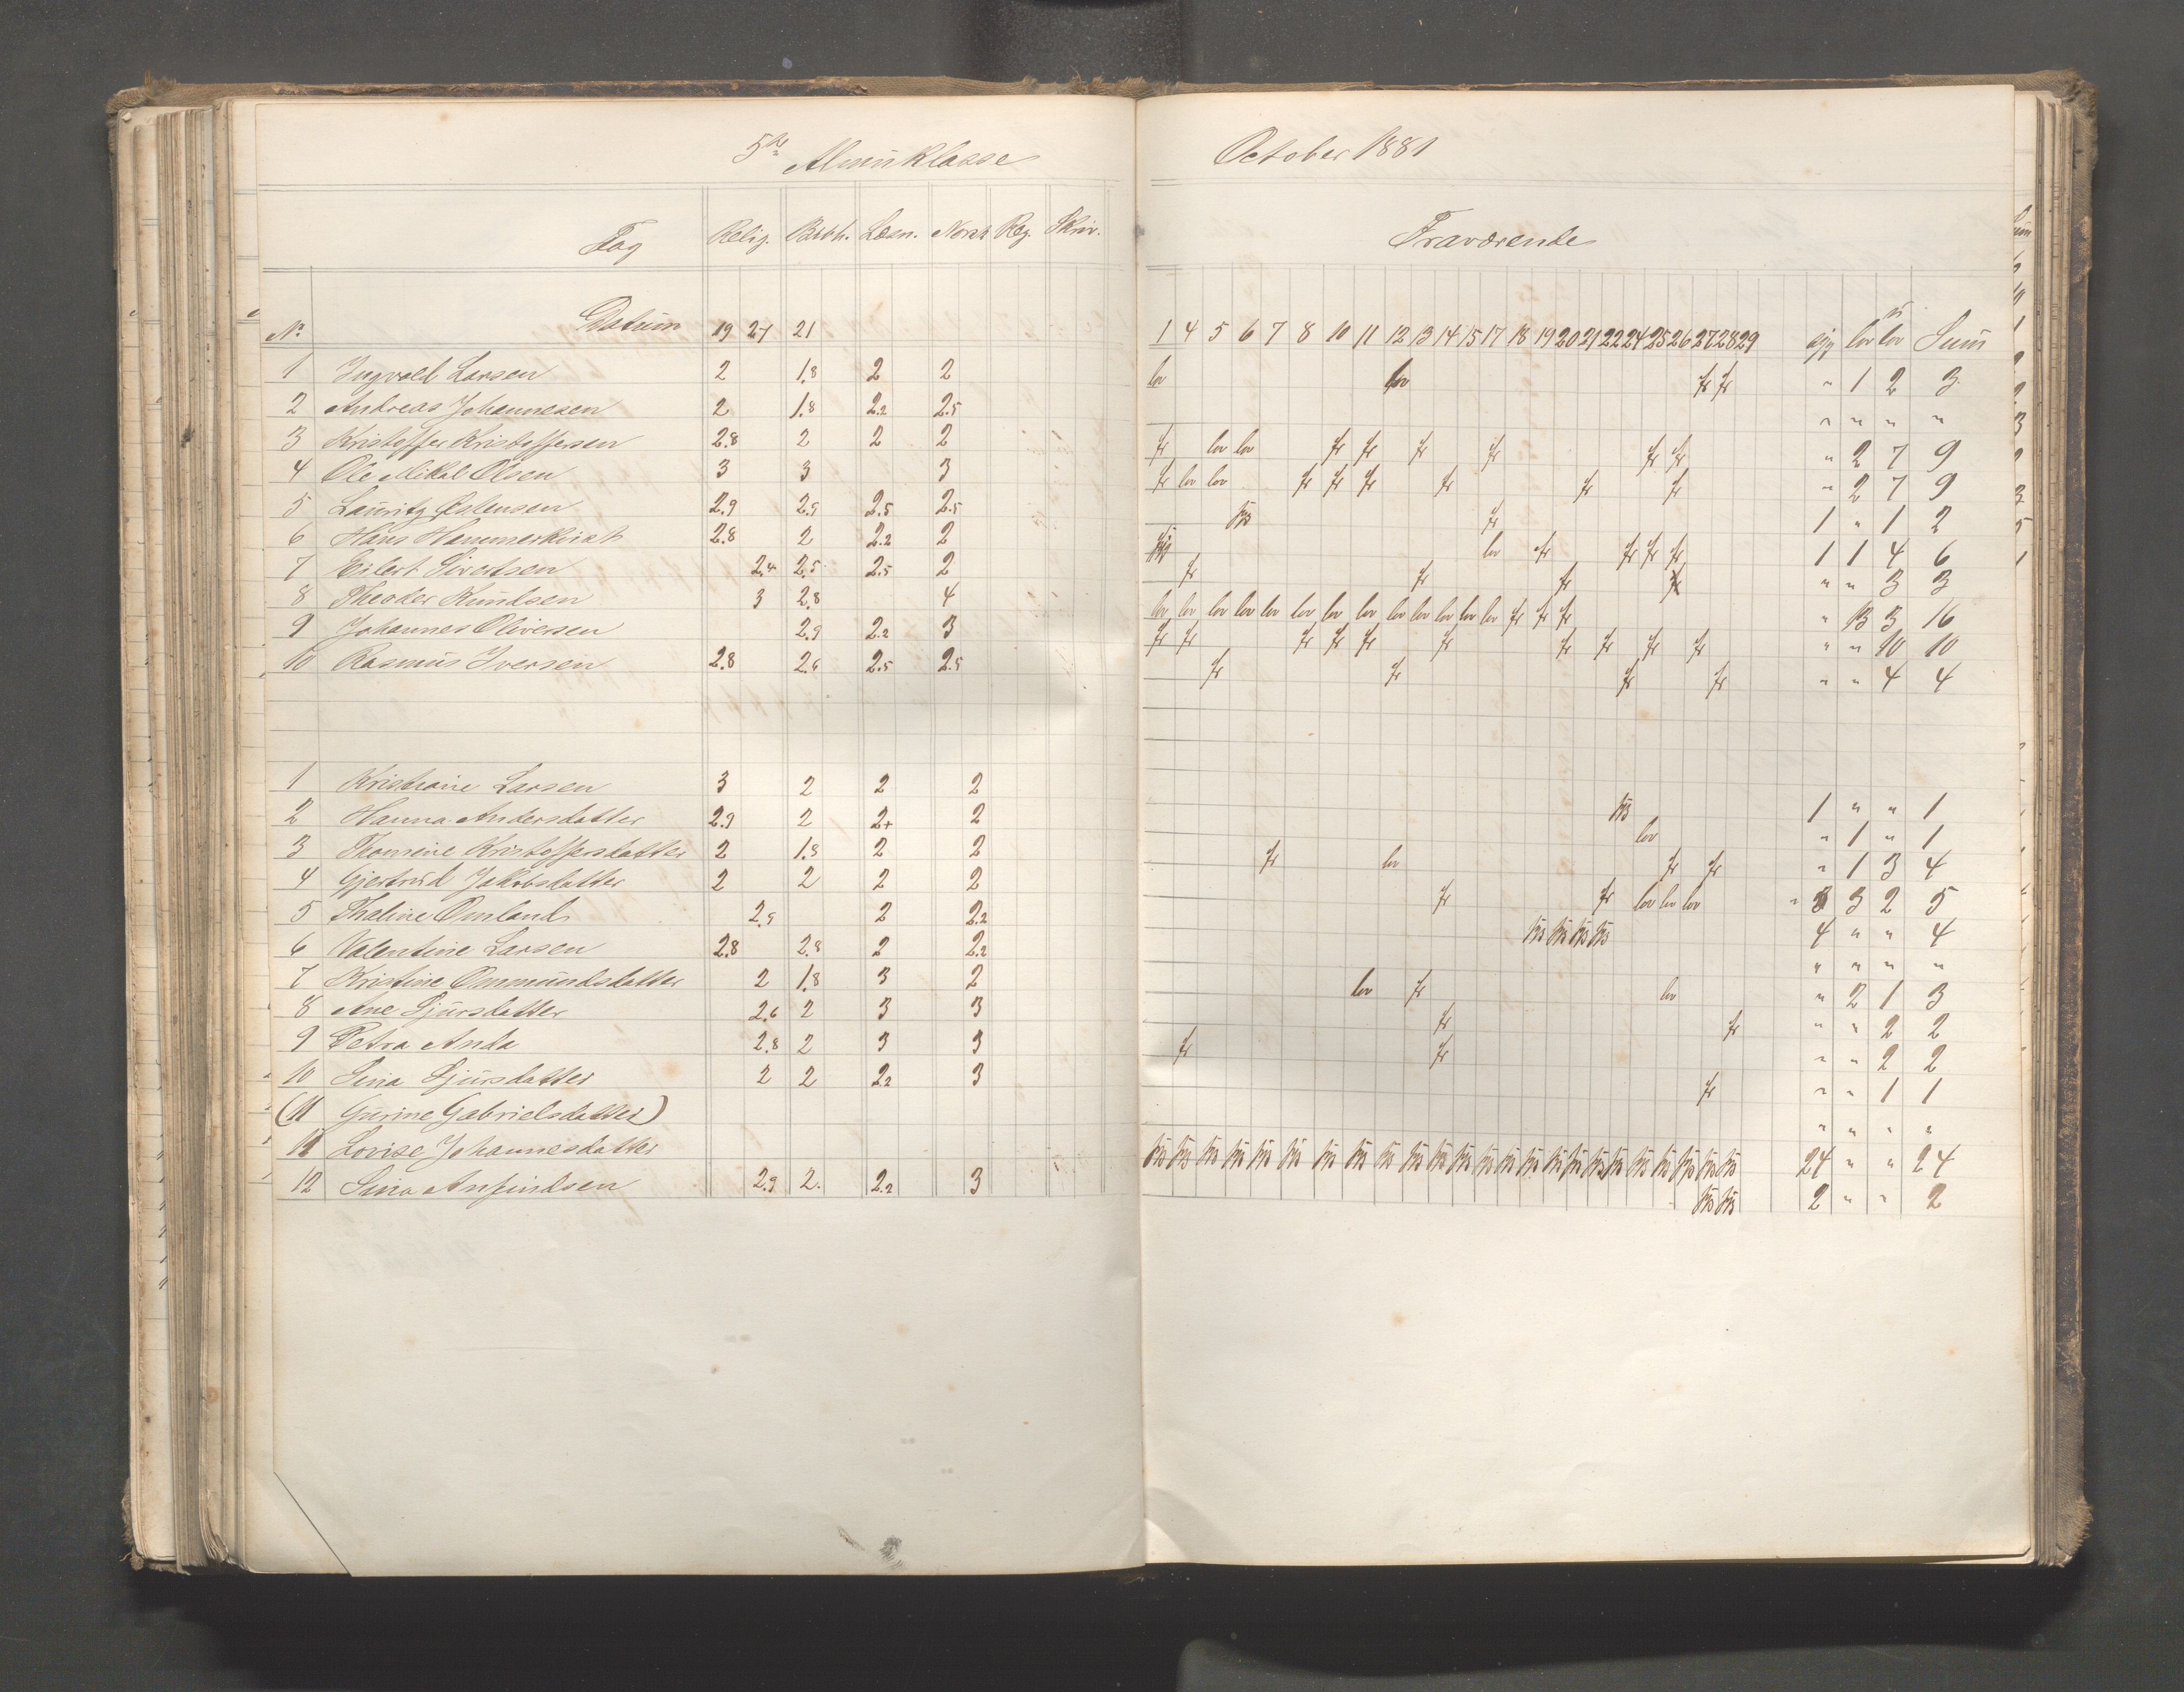 5te Almuklasse
Fag Relig. Bibh. Læsn. Norsk Reg. Skriv.
No Datum 19 27 21
1 Ingvald Larsen 2 1.8 2 2
2 Andreas Johannesen 2 1.8 2.2 2.5
3 Kristoffer Kristoffersen 2.8 2 2 2
4 Ole Mikal Olsen 3 3 3
5 Lauritz Eslensen 2.9 2.9 2.5 2.5
6 Hans Hammerkvist 2.8 2 2.2 2
7 Eilert Sivertsen 2.4 2.5 2.5 2
8 Theodor Knudsen 3 2.8 4
9 Johannes Oliversen 2.9 2.2 3
10 Rasmus Iversen 2.8 2.6 2.5 2.5
1 Kristiane Larsen 3 2 2 2
2 Hanna Andersdatter 2.9 2 2+ 2
3 Thomine Kristoffersdatter 2 1.8 2 2
4 Gjertrud Jakobsdatter 2 2 2 2
5 Thaline Omland 2.9 2 2.2
6 Valentine Larsen 2.8 2.8 2 2.2
7 Kristine Ommundsdatter 2 1.8 3 2
8 Ane Sjursdatter 2.6 2 3 3
9 Petra Anda 2.8 2 3 3
10 Sina Sjursdatter 2 2 2.2 3
(11 Gurine Gabrielsdatter)
11 Lovise Johannesdatter
12 Sina Anfindsen 2.9 2. 2.2 3
October 1881
Fraværende
1 4 5 6 7 8 10 11 12 13 14 15 17 18 19 20 21 22 24 25 26 27 28 29 syg lov lov Sum
lov lov fr fr " 1 2 3
" " " "
fr lov lov fr fr fr fr fr fr " 2 7 9
fr lov lov fr fr fr fr fr fr " 2 7 9
fr 1 " 1 2
syg lov fr fr fr fr 1 1 4 6
fr fr fr " " 3 3
lov lov lov lov lov lov lov lov lov lov lov lov lov fr fr fr " 13 3 16
fr fr fr fr fr fr fr fr fr fr " " 10 10
fr fr fr fr " " 4 4
1 " " 1
lov " 1 " 1
fr lov fr fr " 1 3 4
fr fr lov lov lov " 3 2 5
4 " " 4
" " " "
lov fr lov " 2 1 3
fr fr " " 2 2
fr fr " " 2 2
fr " " 1 1
" " " "
24 " " 24
2 " " 2